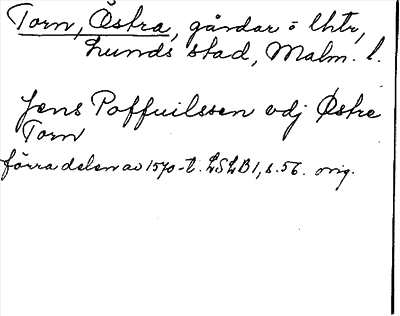 Torn, Östra, gårdar o lhtr,
Lunds stad, Malm. l.
Jens Poffuilssen vdj Østre
Torn
förra delen av 1570-t. LSLB 1, s. 56. orig.